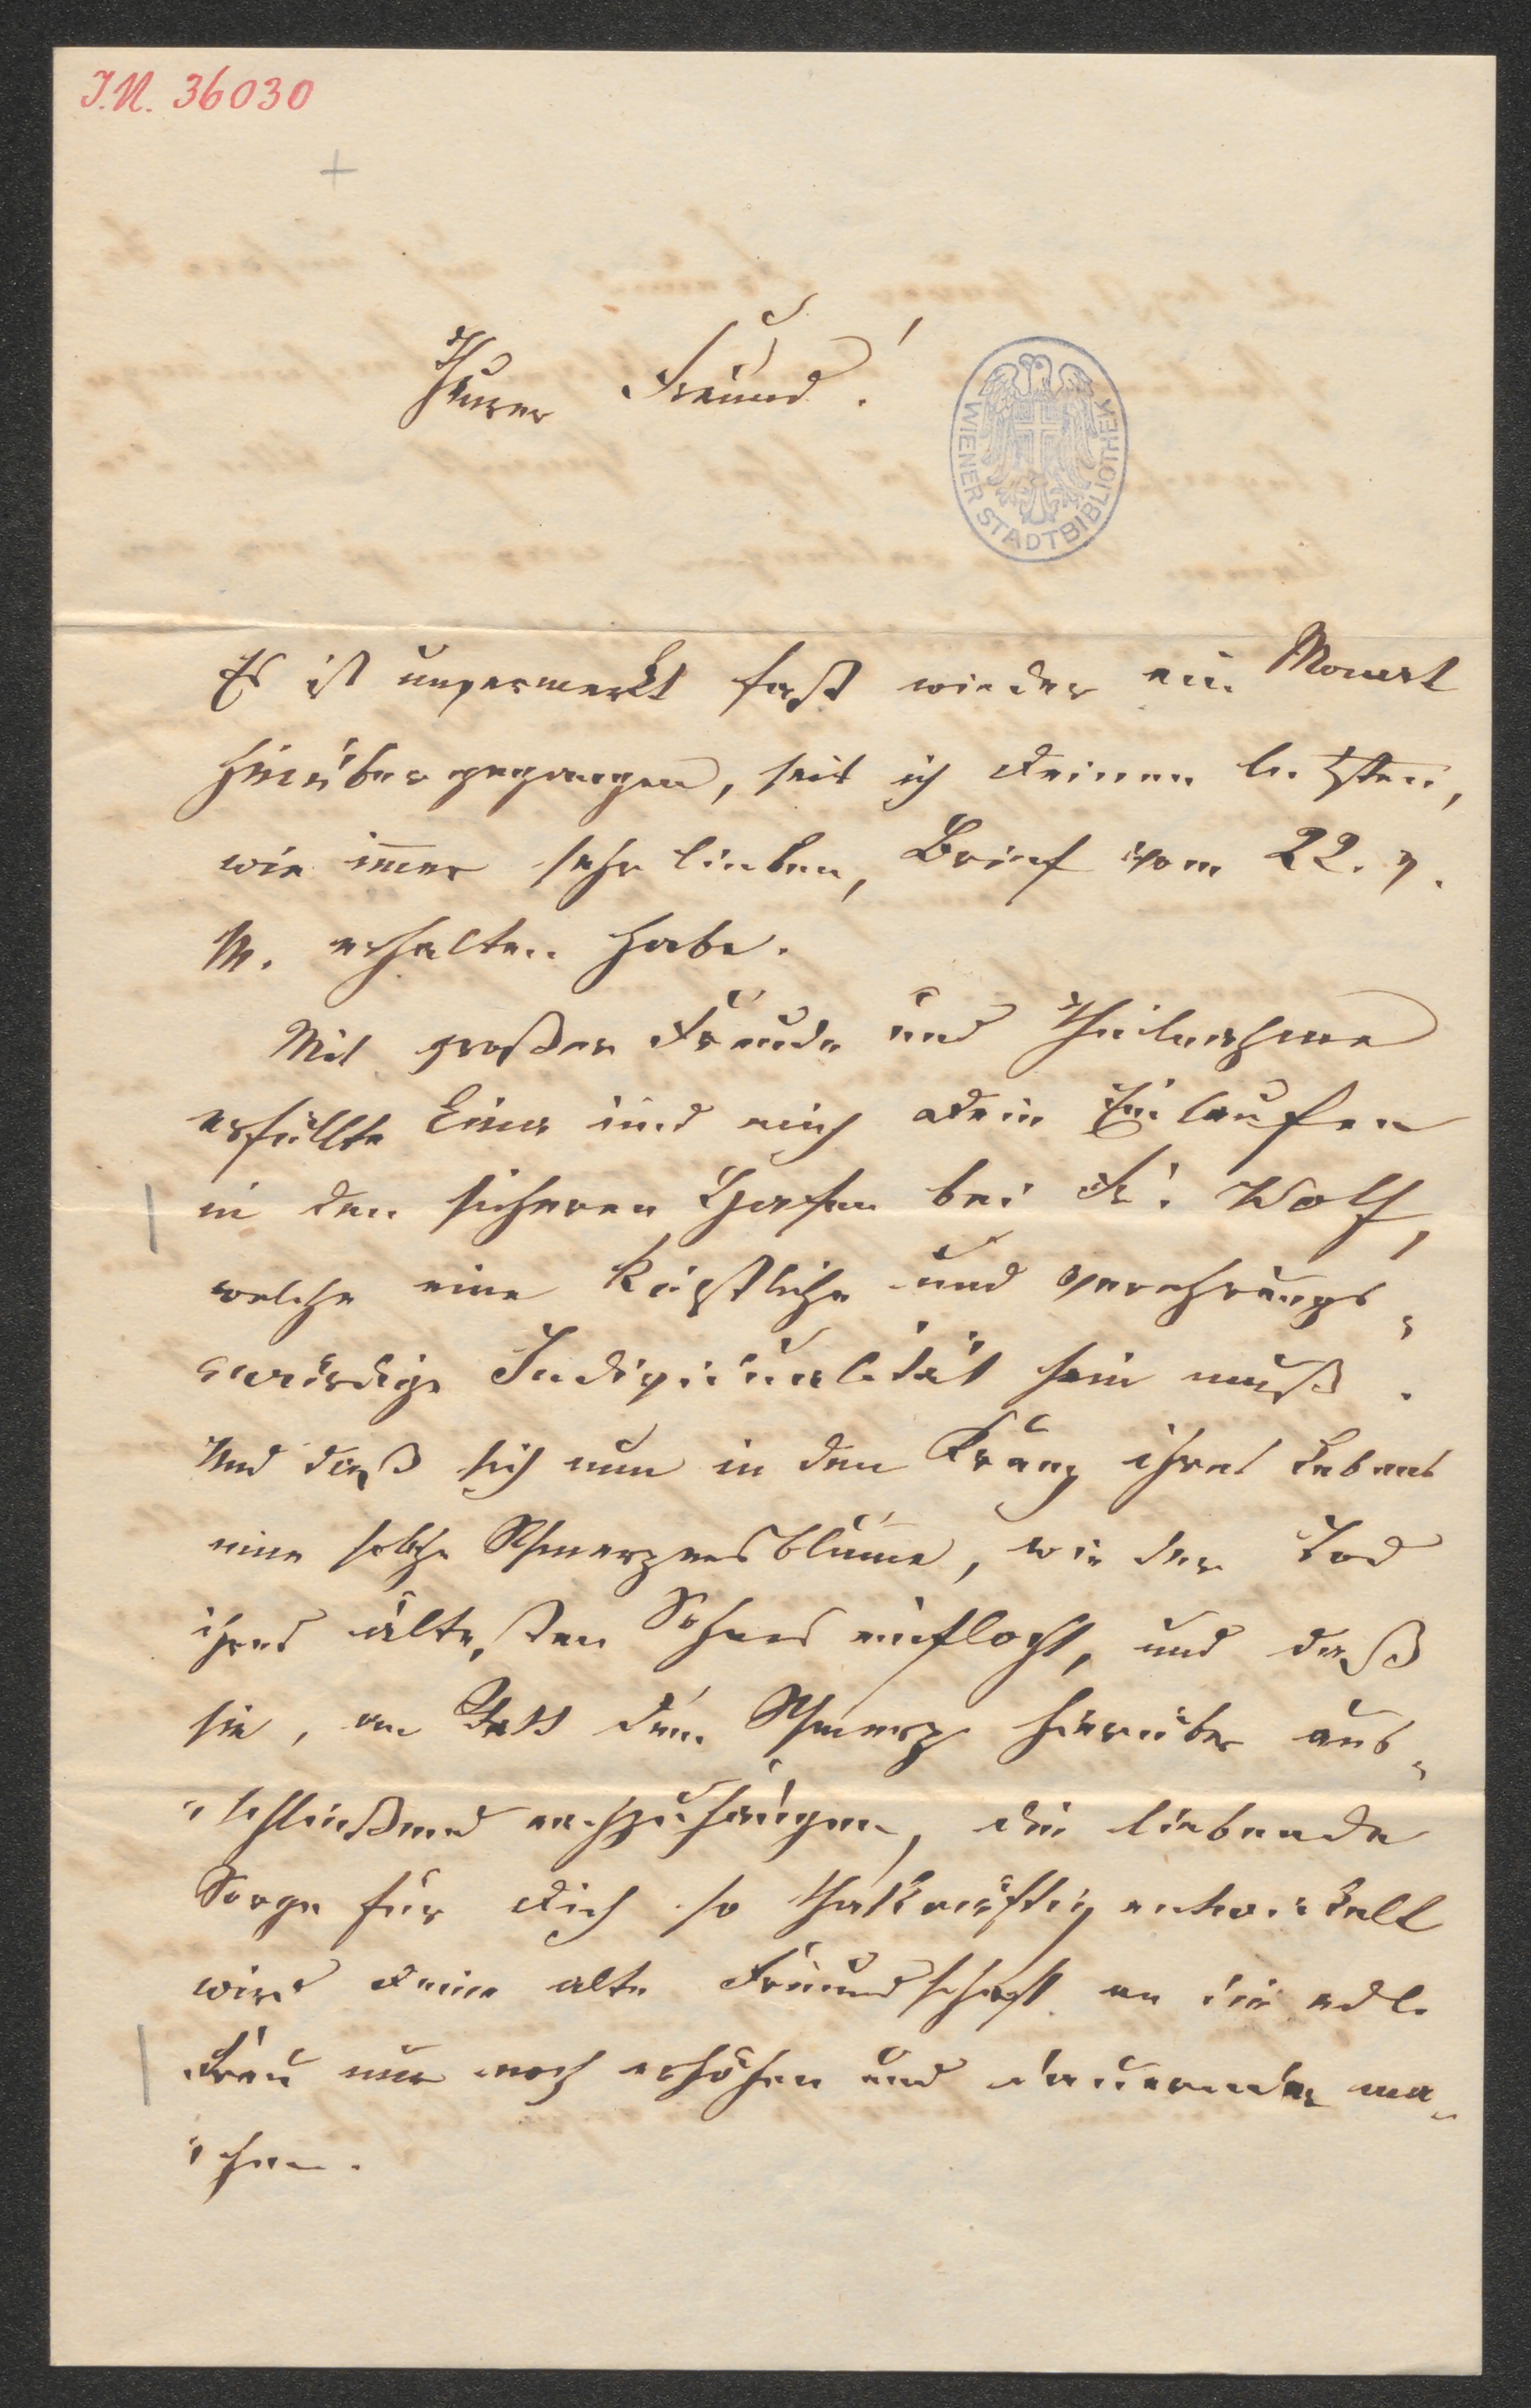 I.N. 36030
Theurer Freund!
WIENER STADTBIBLIOTHEK
Es ist unvermerkt fast wieder ein Monat
hinübergegangen, seit ich Deinen letzten,
wie im̅er sehr lieben, Brief vom 22. v.
M. erhalten habe.
Mit großer Freude und Theilnahme
erfüllte und mich Dein Einlaufen
in den sicheren Hafen bei Fr. Wolf,
welche eine köstliche und verehrungs-
würdige Individualität sein muß.
Und daß sich nun in den Kranz ihres Lebens
eine solche Schmerzensblume, wie der Tod
ihres ältesten Sohnes einflocht, und daß
sie, anstatt dem Schmerz hierüber aus-
schließend nachzuhängen, die liebende
Sorge für Dich so thatkräftig entwickelt
wird Deine alte Freundschaft an die edle
Frau nur noch erhöhen und dauernder ma-
chen.